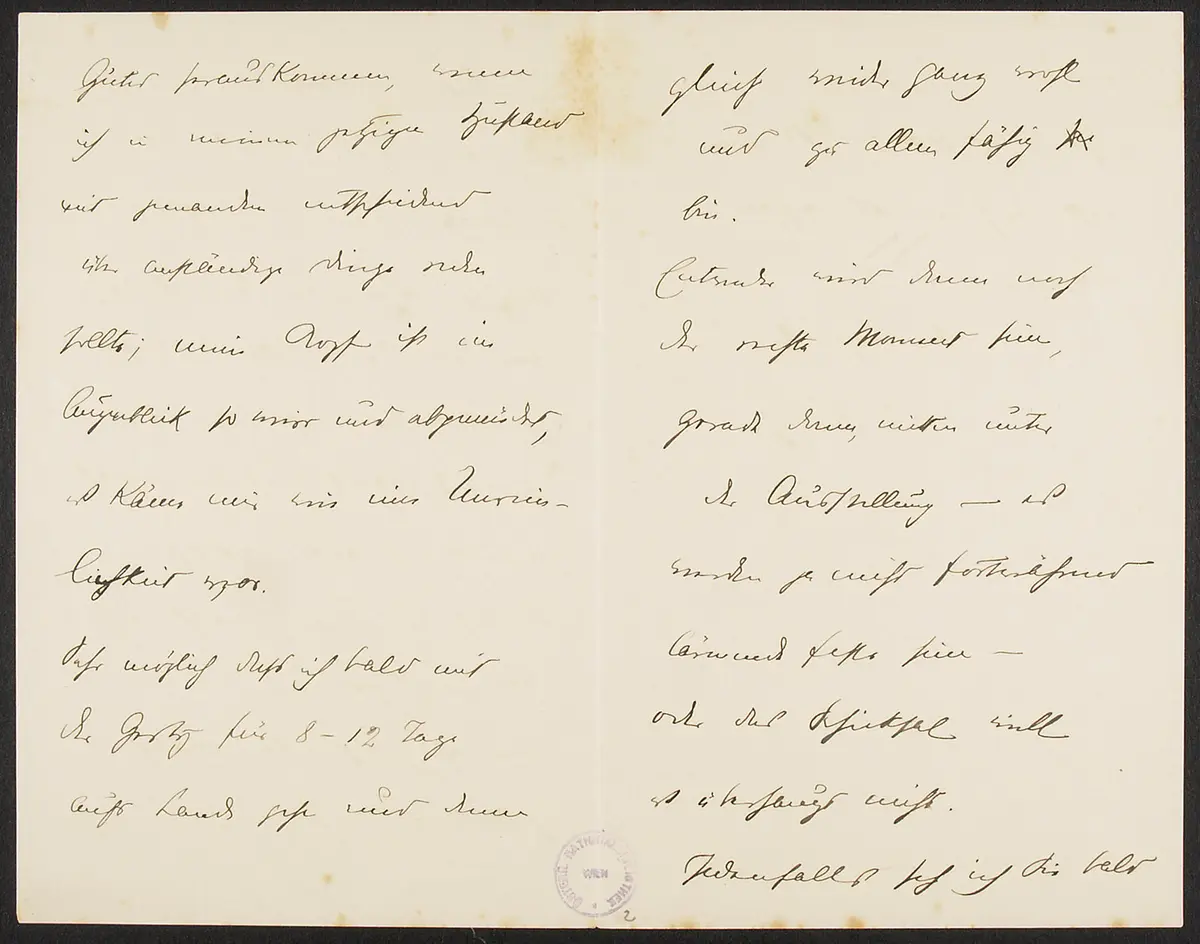 Gutes herauskommen, wenn
ich in meinem jetzigen Zustand
mit jemandem entscheidend
über anständige Dinge reden
sollte; mein Kopf ist im
Augenblick so wirr und abgemüdet,
es käme mir wie eine Unrein-
lichkeit vor.
Sehr möglich dass ich bald mit
der Gerty für 8 – 12 Tage
aufs Land gehe und dann
gleich wieder ganz wohl
und zu allem fähig
bin.
Entweder wird dann noch
der rechte Moment sein,
gerade dann, mitten unter
der Ausstellung — es
werden ja nicht fortwährend
lärmende Feste sein —
oder das Schicksal will
es überhaupt nicht.
Jedenfalls seh ich Sie bald
ÖSTERR. NATIONALBIBLIOTHEK WIEN
2